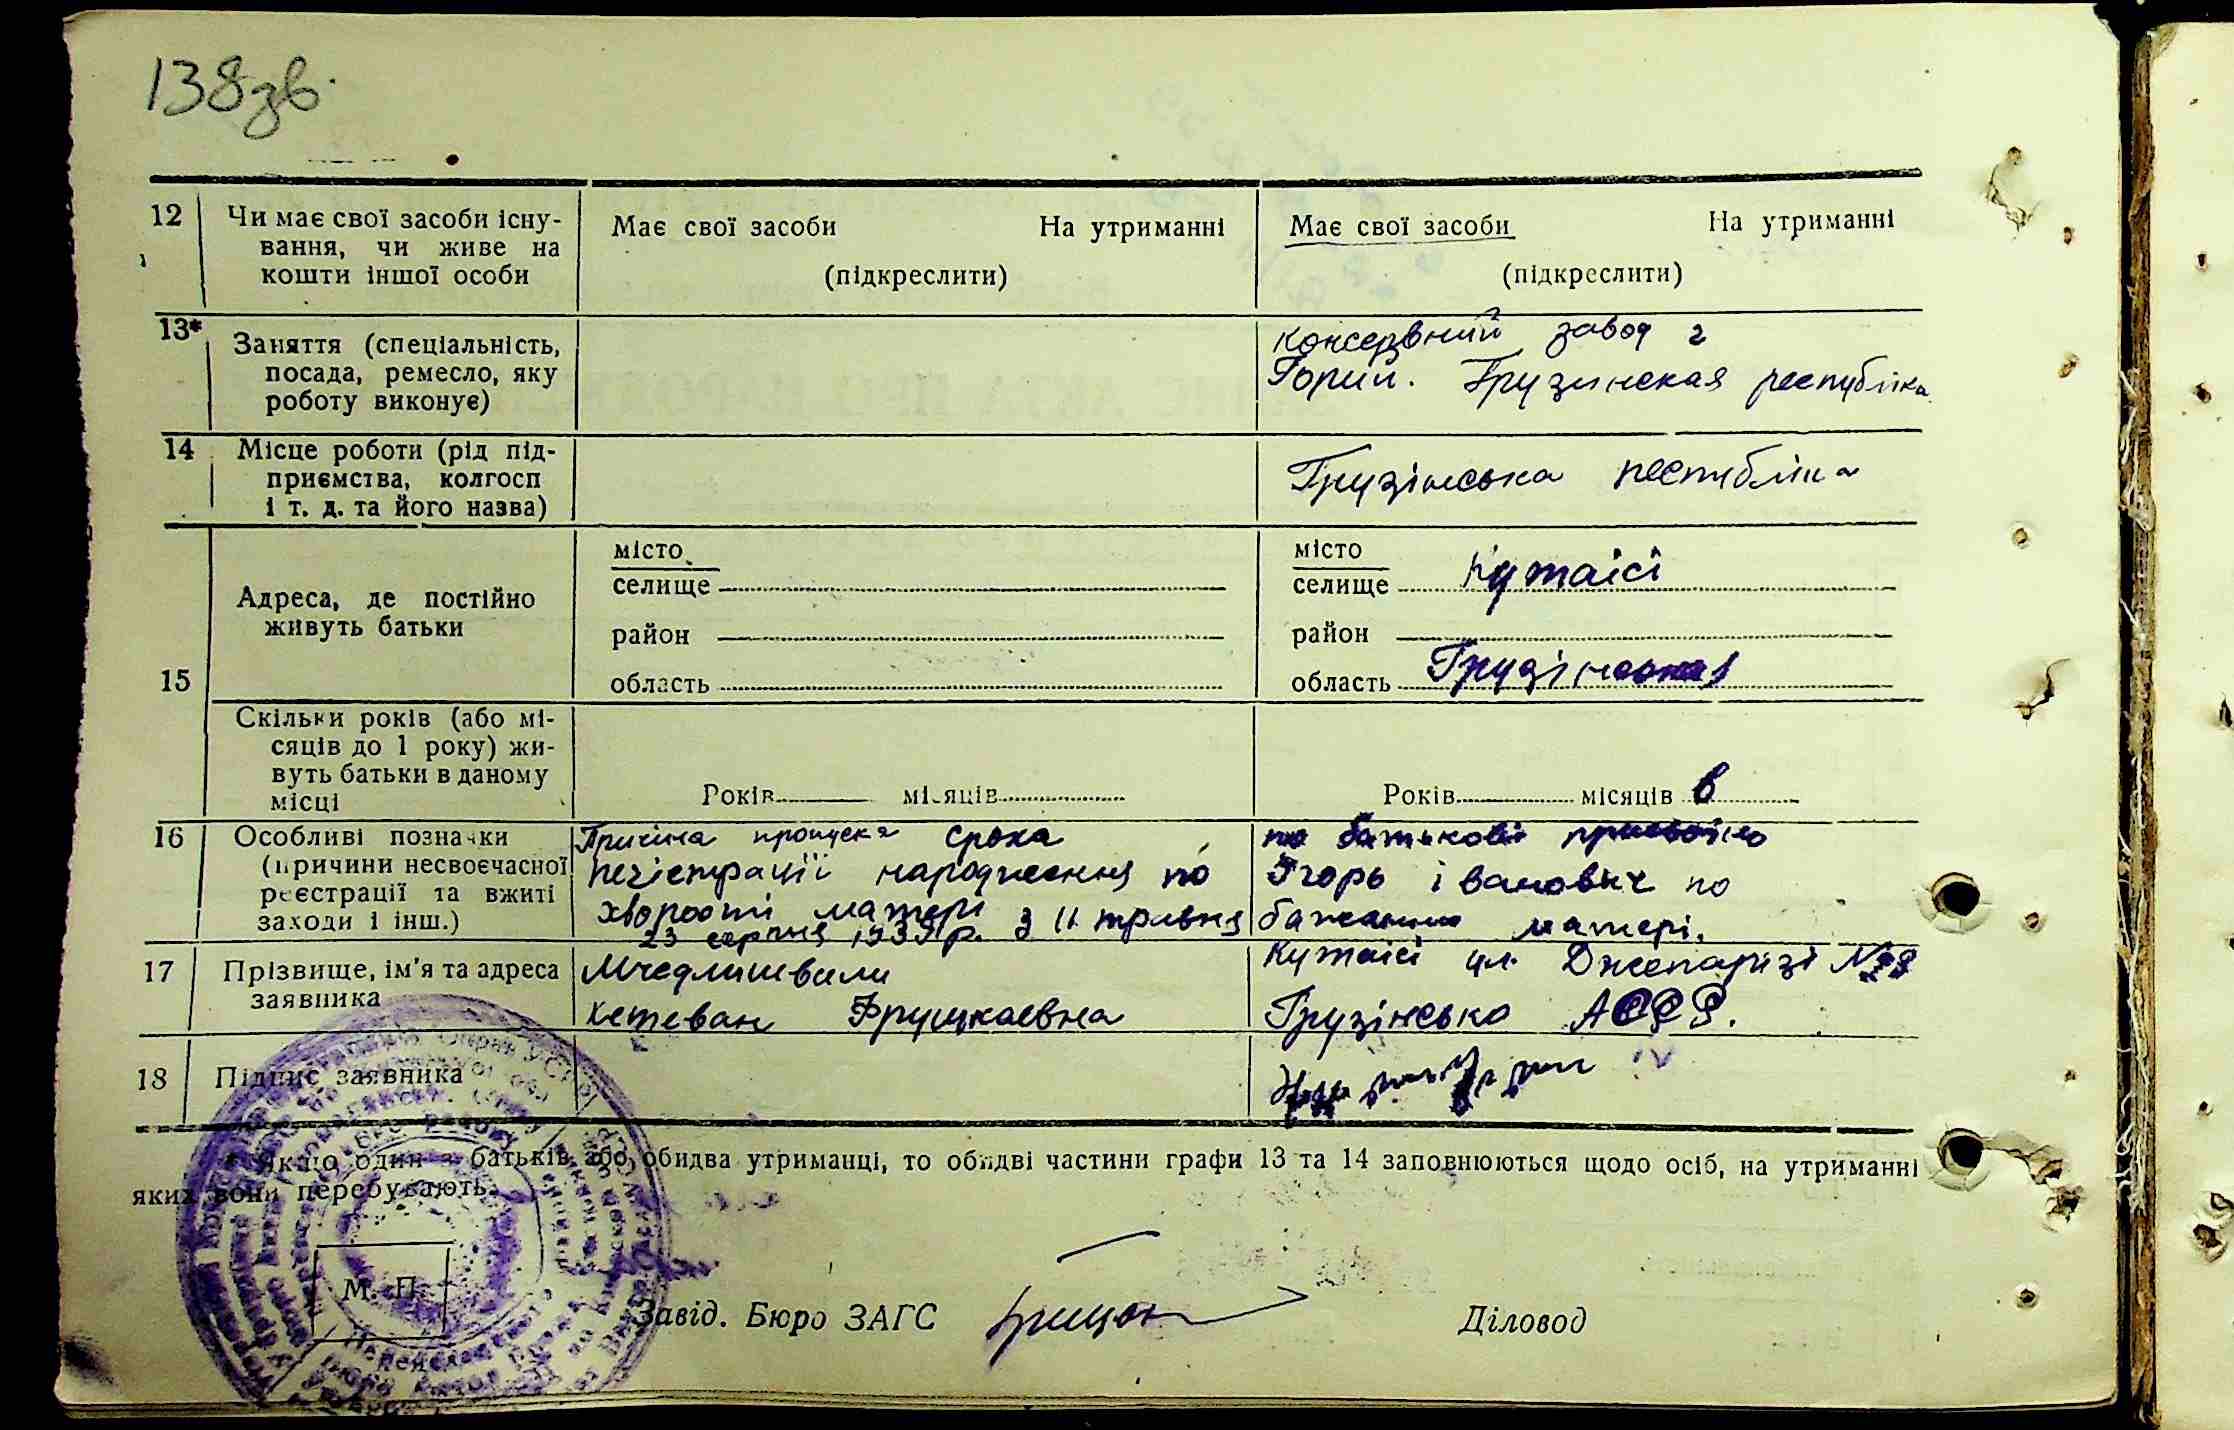 138зв.
12 Чи має свої засоби існу-
вання, чи живе на
кошти іншої особи
Має свої засоби На утриманні
(підкреслити)
Має свої засоби На утриманні
(підкреслити)
13* Заняття (спеціальність,
посада, ремесло, яку
роботу виконує)
Консервний завод г
Горий. Грузинская республіка
14 Місце роботи (рід під-
приємства, колгосп
і т. д. та його назва)
Грузінська республіка
15 Адреса, де постійно
живуть батьки
місто
селище
район
область
місто
селище Кутаісі
район
область Грузінская
Скільки років (або мі-
сяців до 1 року) жи-
вуть батьки в даному
місці
Років місяців
Років місяців 6
16 Особливі позначки
(причини несвоєчасної
реєстрації та вжиті
заходи і інш.)
Причина пропуска срока
регістрації народження по
хворості матері з 11 травня
23 серпня 1939 р.
по батькові присвоїно
Ігорь івановіч по
бажанню матері.
17 Прізвище, ім'я та адреса
заявника
Мчедлишвили
Кетеван Фруцкаевна
Кутаісі ул. Джепарізі №
Грузінсько АССР.
18 Підпис заявника
* Якщо один з батьків або обидва утриманці, то обидві частини графи 13 та 14 заповнюються щодо осіб, на утриманні
яких вони перебувають.
М. П.
Завід. Бюро ЗАГС
Діловод